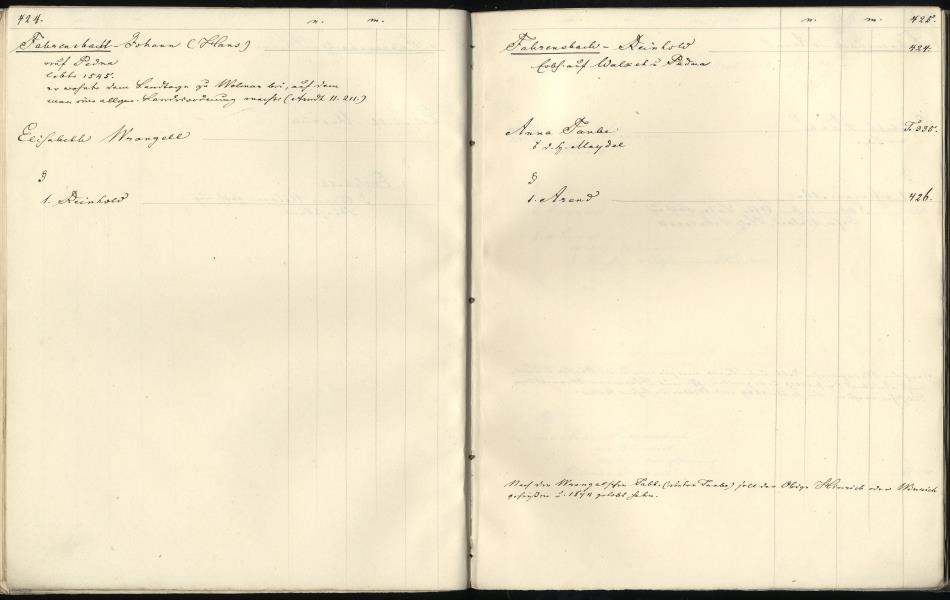 424.
n. m.
Fahrensbach - Johann (Hans)
auf Padna
lebte 1545.
er wohnte dem Landtage zu Wolmar bei, auf dem
man eine allgem. Landesordnung machte (Arndt II. 211.)
Elisabeth Wrangell
§
1. Reinhold
n. m. 425.
Fahrensbach - Reinhold 424.
Erbh. auf Walzet u Padna
Anna Taube T. 235.
d. h. Maydel
§
1. Arend 426.
Nach den Wrangelschen Tabb. (siehe Taube) soll der Obige Hinrich oder Winrich
geheißen u. 1574 gelebt haben.